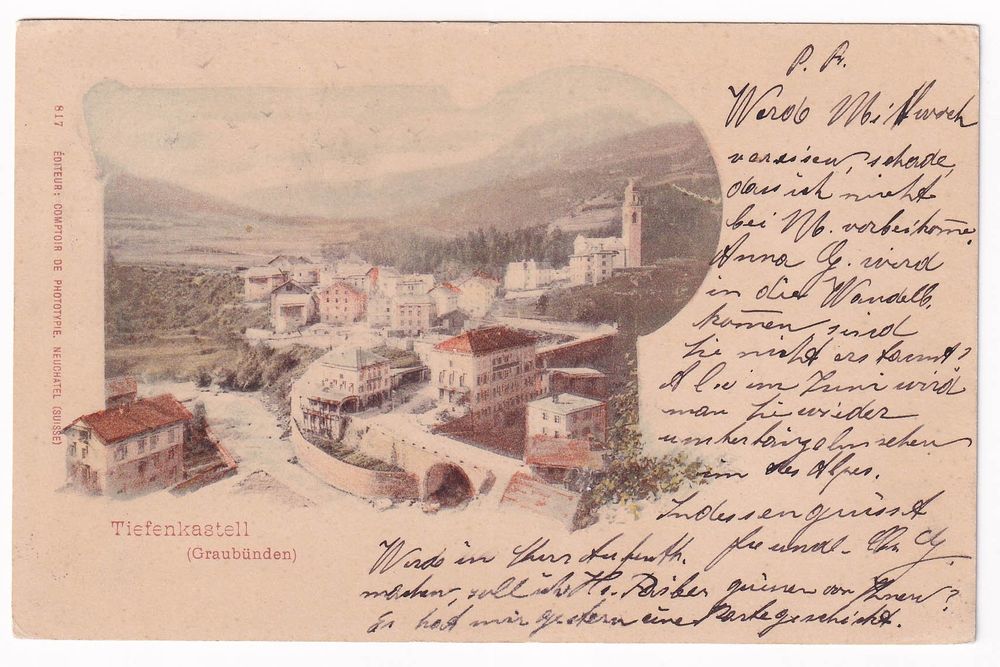 817 ÉDITEUR: COMPTOIR DE PHOTOTYPIE, NEUCHATEL (SUISSE)
Tiefenkastell
(Graubünden)
P. P.
Werde Mittwoch
verreisen, schade,
dass ich nicht
bei M. vorbeikom̅e.
Anna G. wird
in die
kom̅en, sind
Sie nicht erstaunt?
Also im Juni wird
man Sie wieder
sehen
im des Alpes.
Indessen grüsst
freundl.
Werde in Aufenth.
machen, soll ich H. grüssen von Ihnen?
Er hat mir gestern eine Karte geschickt.